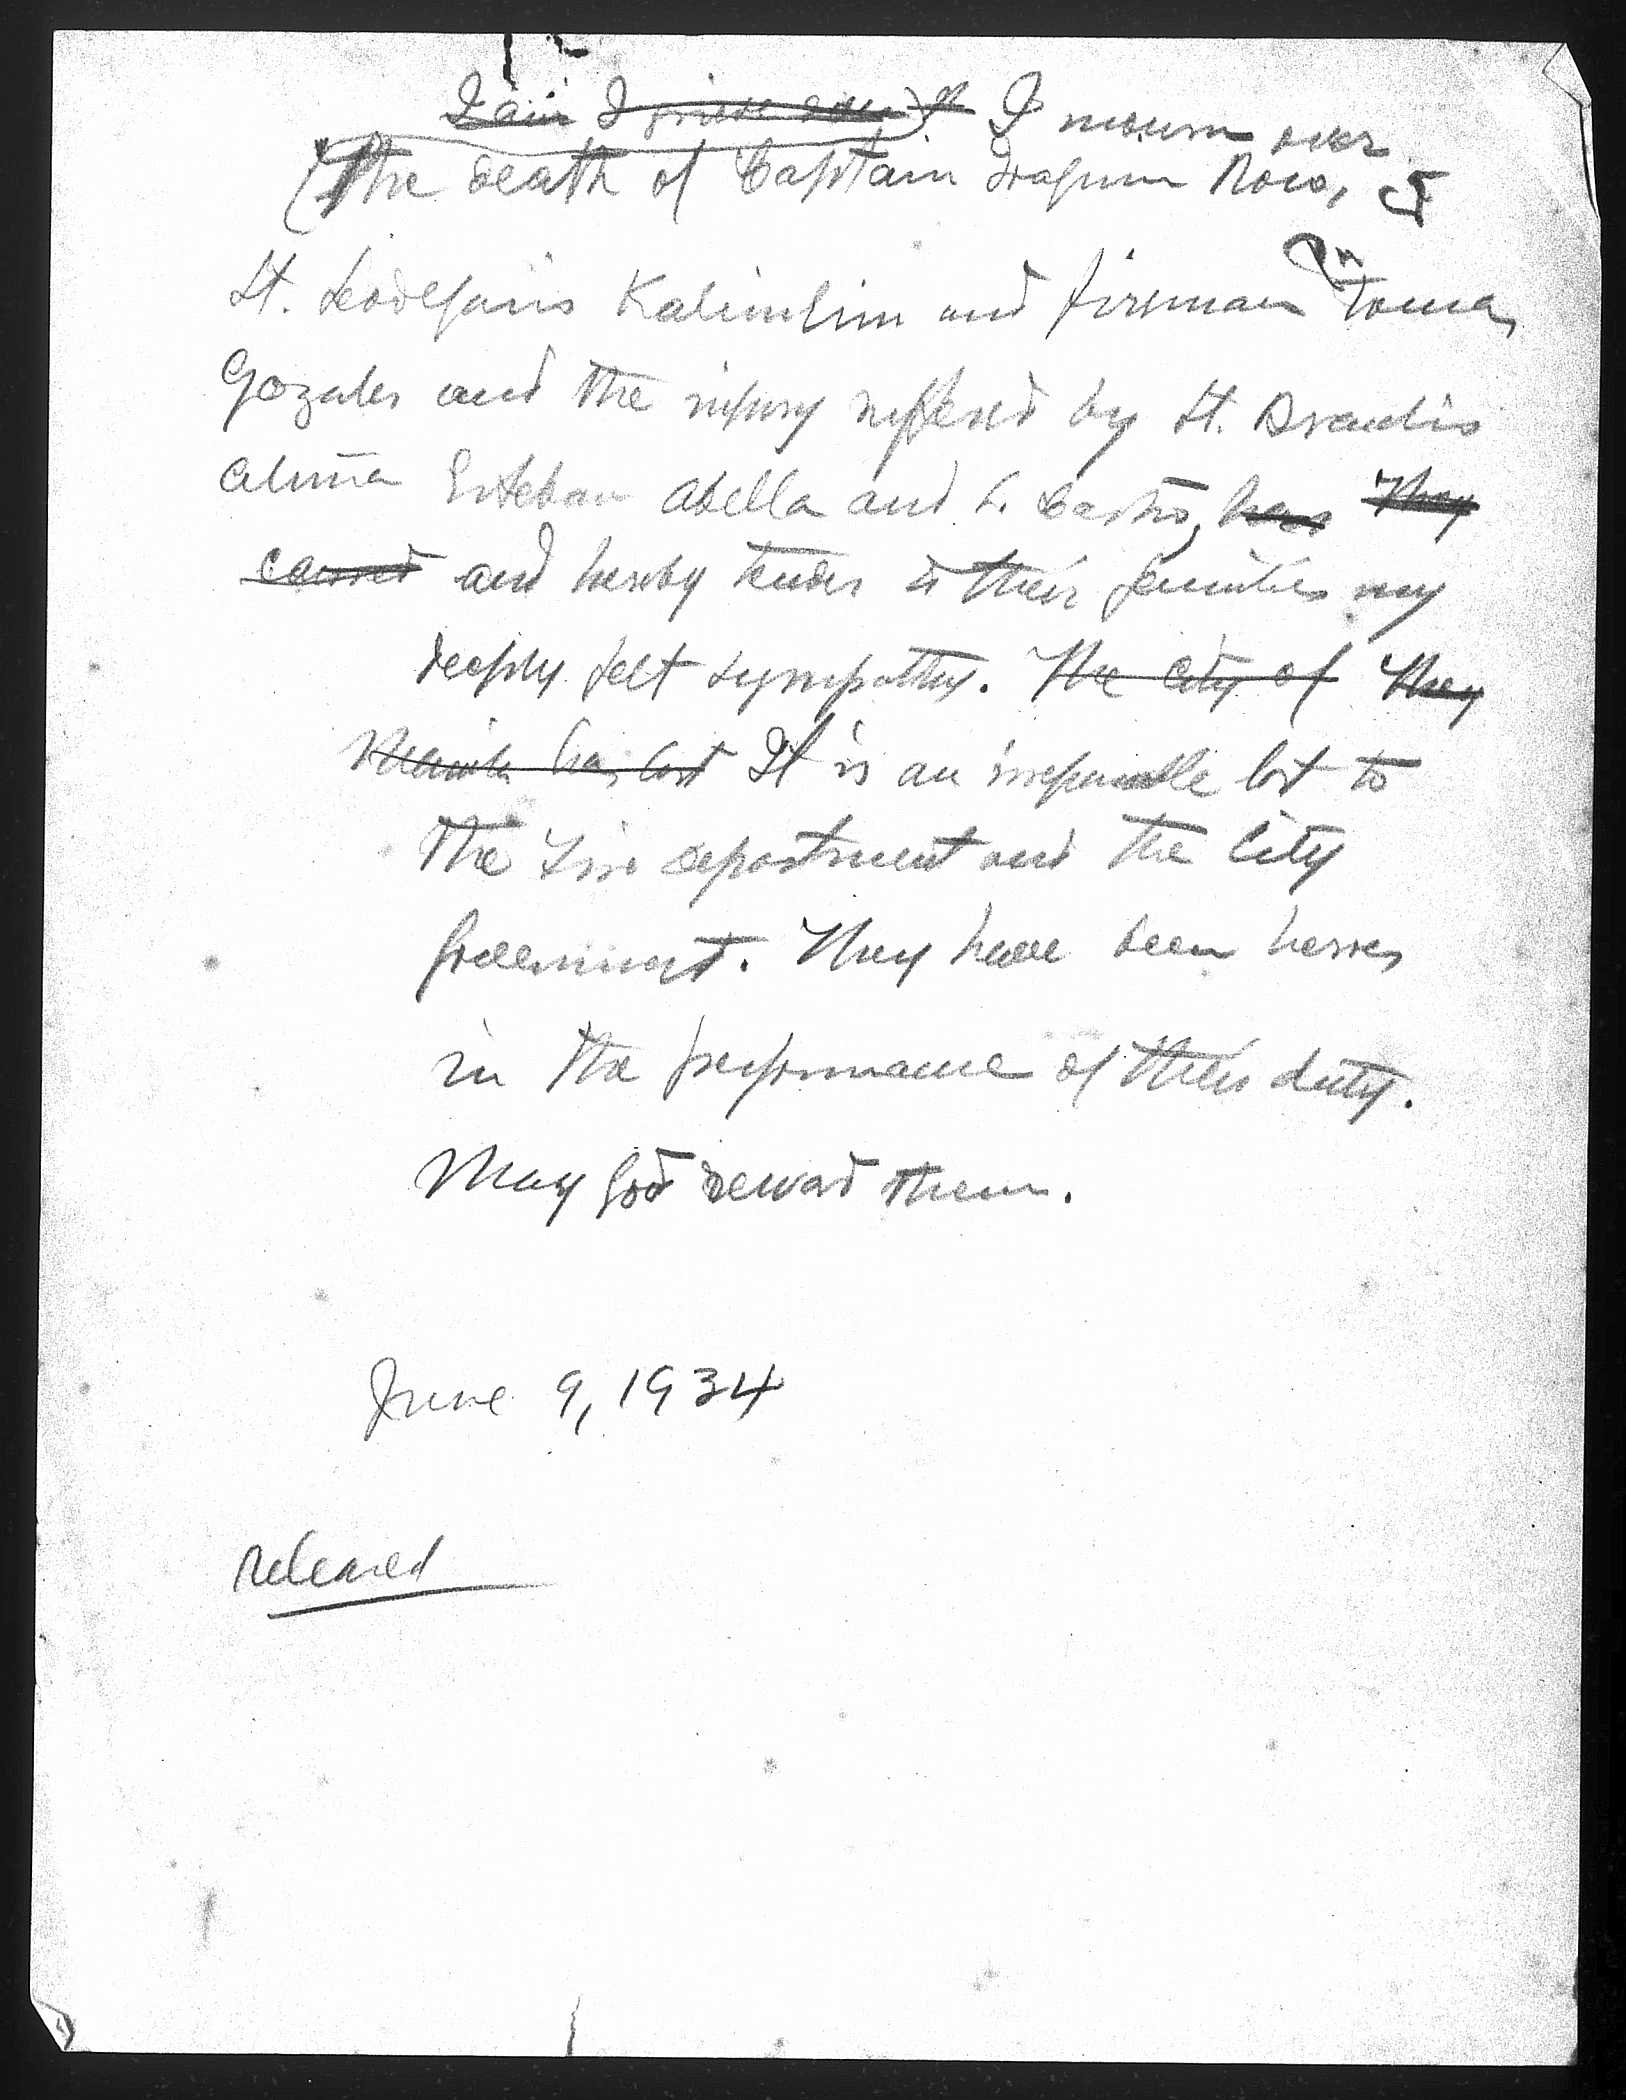 I am I grieve over I mourn over
(The death of Captain Roco,
Lt. Leodegario Kalimlim and fireman Tomas
Gozales and the injury suffered by Lt. Braulio
Alma Esteban Abella and L. Castro, has They
caused and hereby tender to their families my
deeply felt sympathy. The City of They
Manila has lost It is an irreparable lost to
the Fire department and the City
Government. They have been heroes
in the performance of their duty.
May God reward them.
June 9, 1934
released